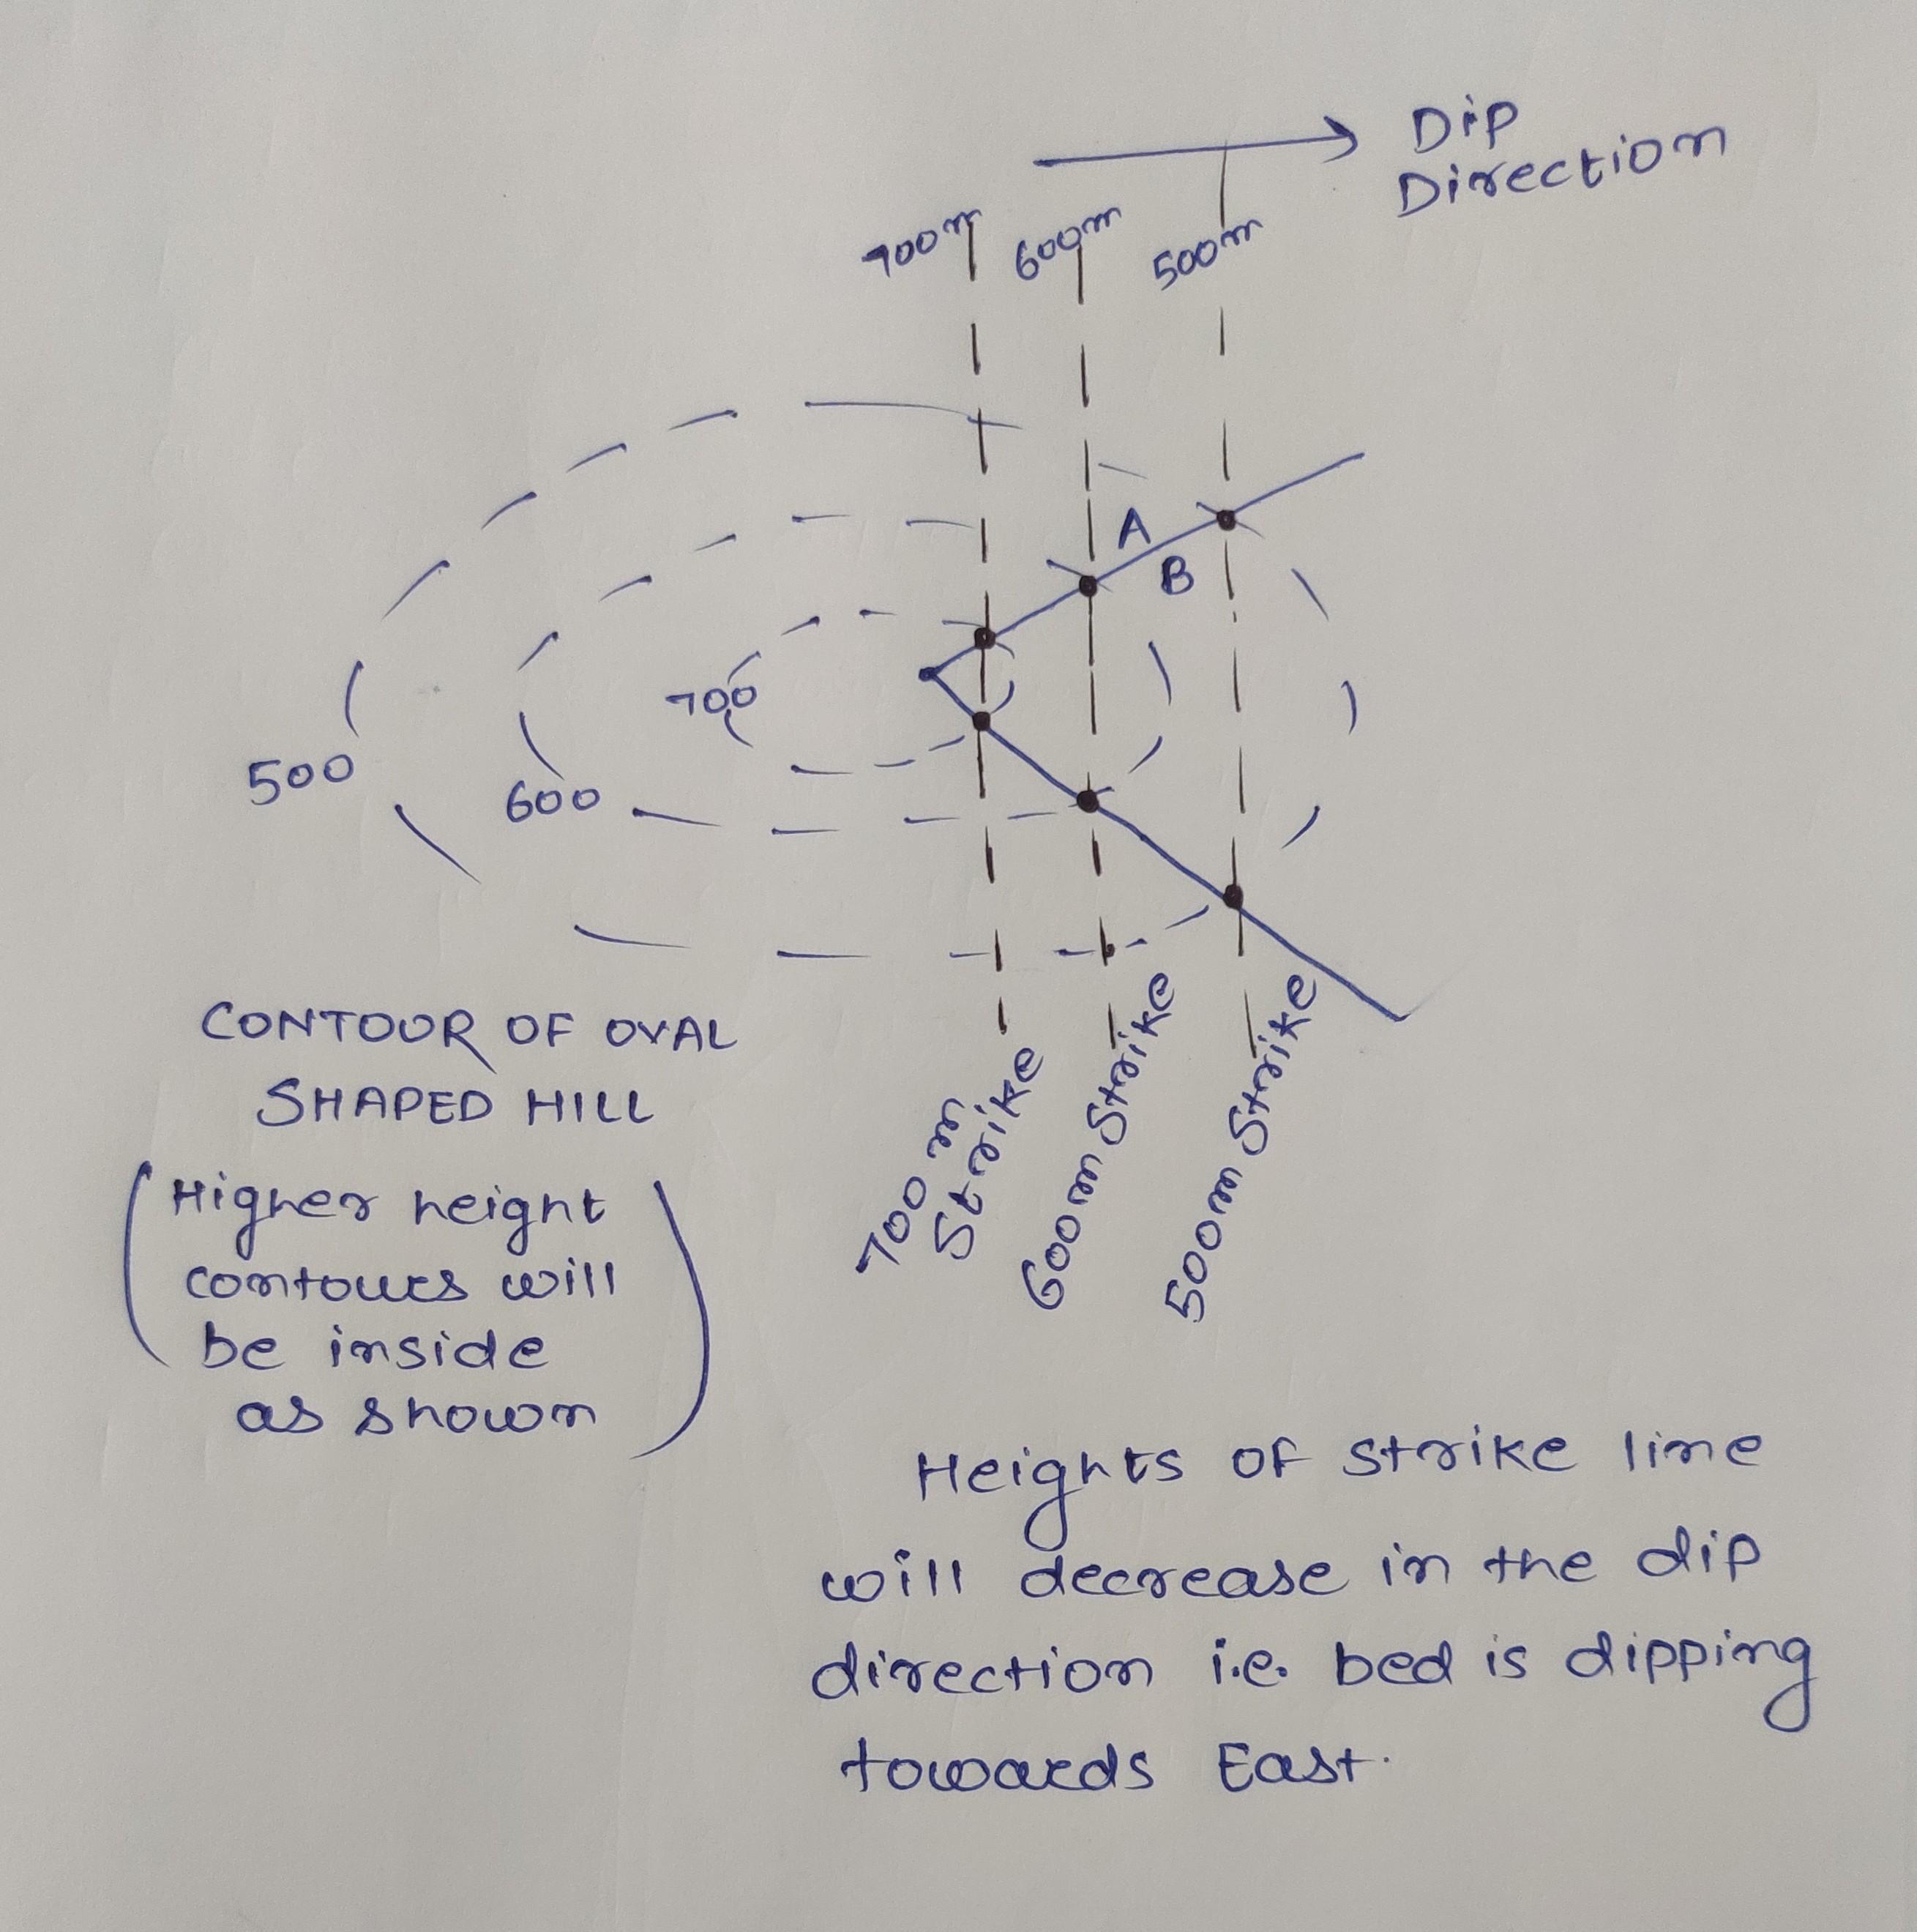 Dip
Direction
700m
600m
500m
A
B
700
500
600
CONTOUR OF OVAL
SHAPED HILL
(Higher height
contours will
be inside
as shown)
700 m
Strike
600m Strike
500m Strike
Heights of strike line
will decrease in the dip
direction i.e. bed is dipping
towards East.